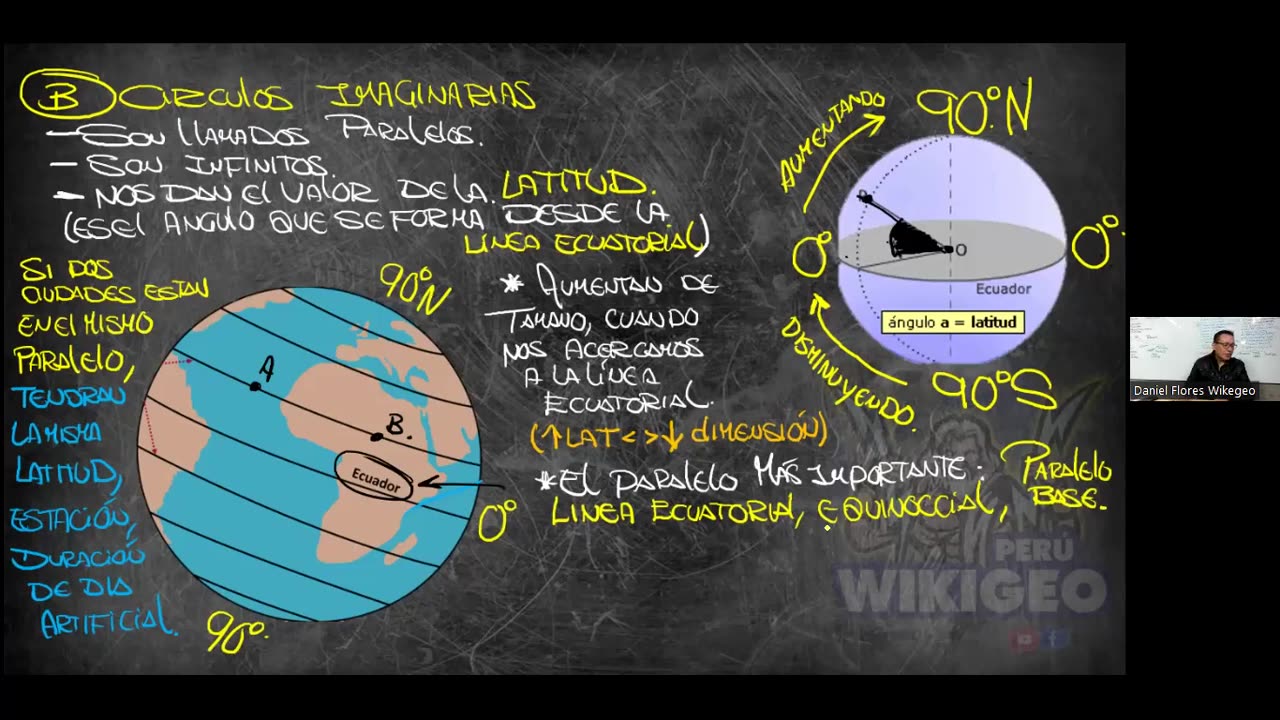 B CIRCULOS IMAGINARIAS
- SON LLAMADOS PARALELOS.
- SON INFINITOS.
- NOS DAN EL VALOR DE LA LATITUD.
(ES EL ANGULO QUE SE FORMA DESDE LA
LINEA ECUATORIAL)
SI DOS
CIUDADES ESTAN
EN EL MISMO
PARALELO,
TENDRAN
LA MISMA
LATITUD,
ESTACIÓN,
DURACIÓN
DE DIA
ARTIFICIAL.
90°N
A
B.
Ecuador
0°
90°.
* AUMENTAN DE
TAMAÑO, CUANDO
NOS ACERCAMOS
A LA LÍNEA
ECUATORIAL.
(↑LAT < > ↓ DIMENSIÓN)
* EL PARALELO MÁS IMPORTANTE: PARALELO
BASE.
LINEA ECUATORIAL, EQUINOCCIAL,
AUMENTANDO
90°N
0°
O
0°.
Ecuador
ángulo a = latitud
DISMINUYENDO.
90°S
PERÚ
WIKIGEO
Daniel Flores Wikegeo